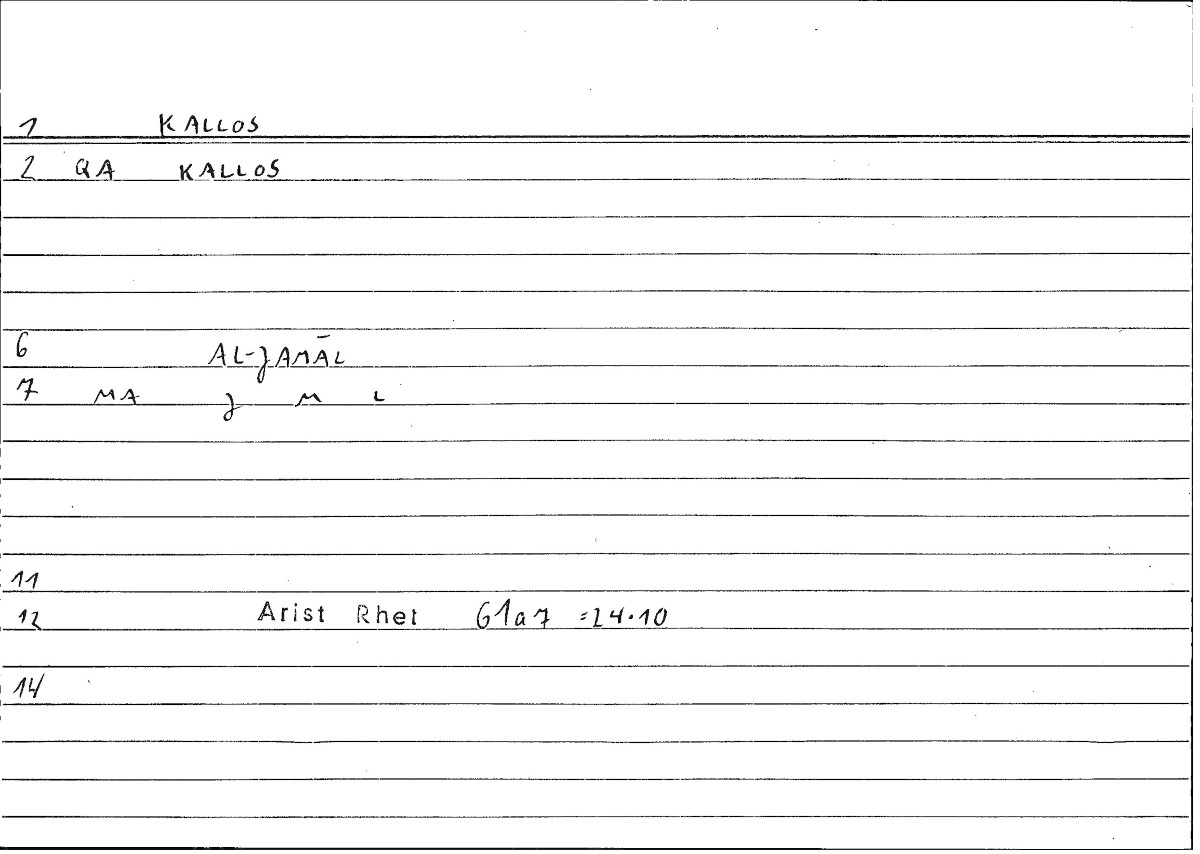 1 KALLOS
2 QA KALLOS
6 AL-JAMĀL
7 MA J M L
11
12 Arist Rhet 61a7 =24.10
14